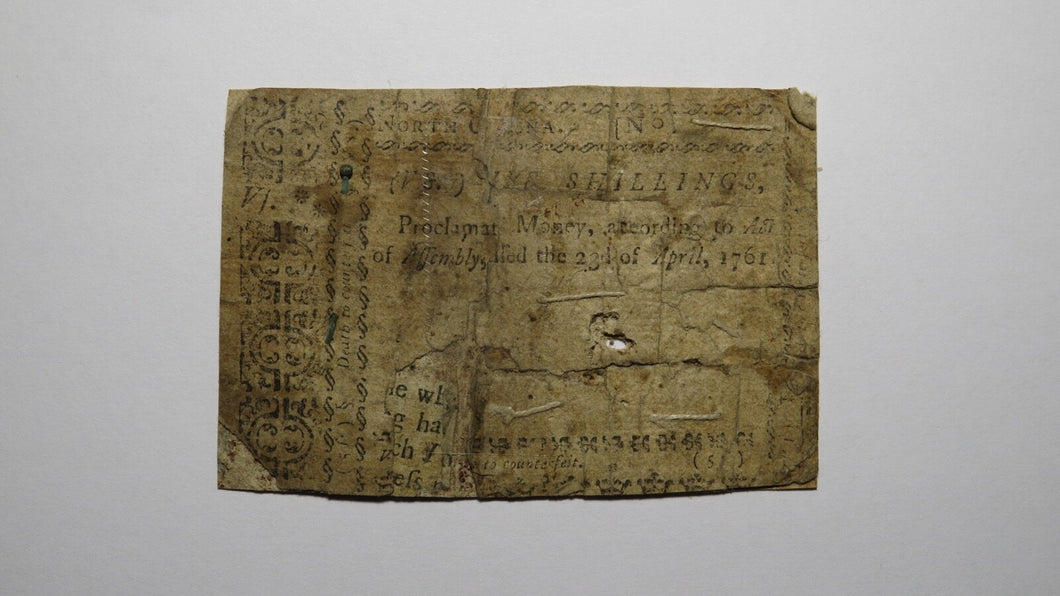 NORTH C ENA. [No
VI.
(VI.) SHILLINGS,
Proclamat Money, according to Act
of Assembly, ssed the 23d of April, 1761.
Death to counterfeit
e wh
g ha
ch
ess
to counterfeit.
( 5 )